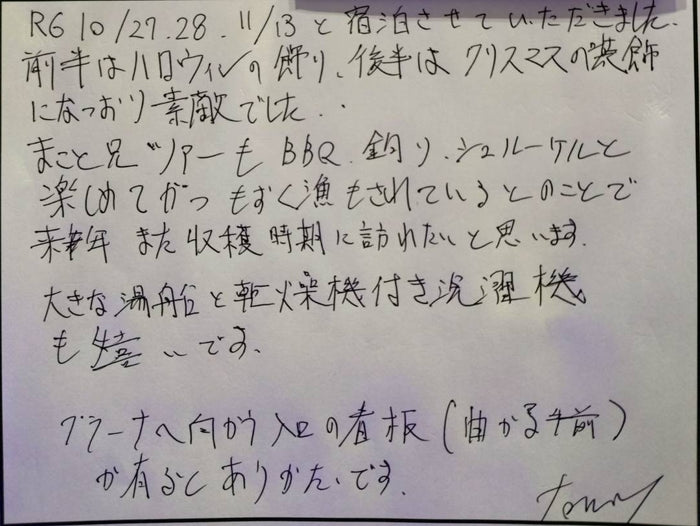 R6 10/27.28. 11/13と宿泊させていただきました.
前半はハロウィンの飾り、後半は クリスマスの装飾
になっおり素敵でした..
まこと兄"ツアーも BBQ. 釣り、シュノーケルと
楽しめてかつ もずく漁もされているとのことで
来年 また収穫時期に訪れたいと思います.
大きな湯船と乾燥機付き洗濯機
も嬉しいです.
グラーナへ向かう入口の看板(曲がる手前)
が有るとありがたいです.